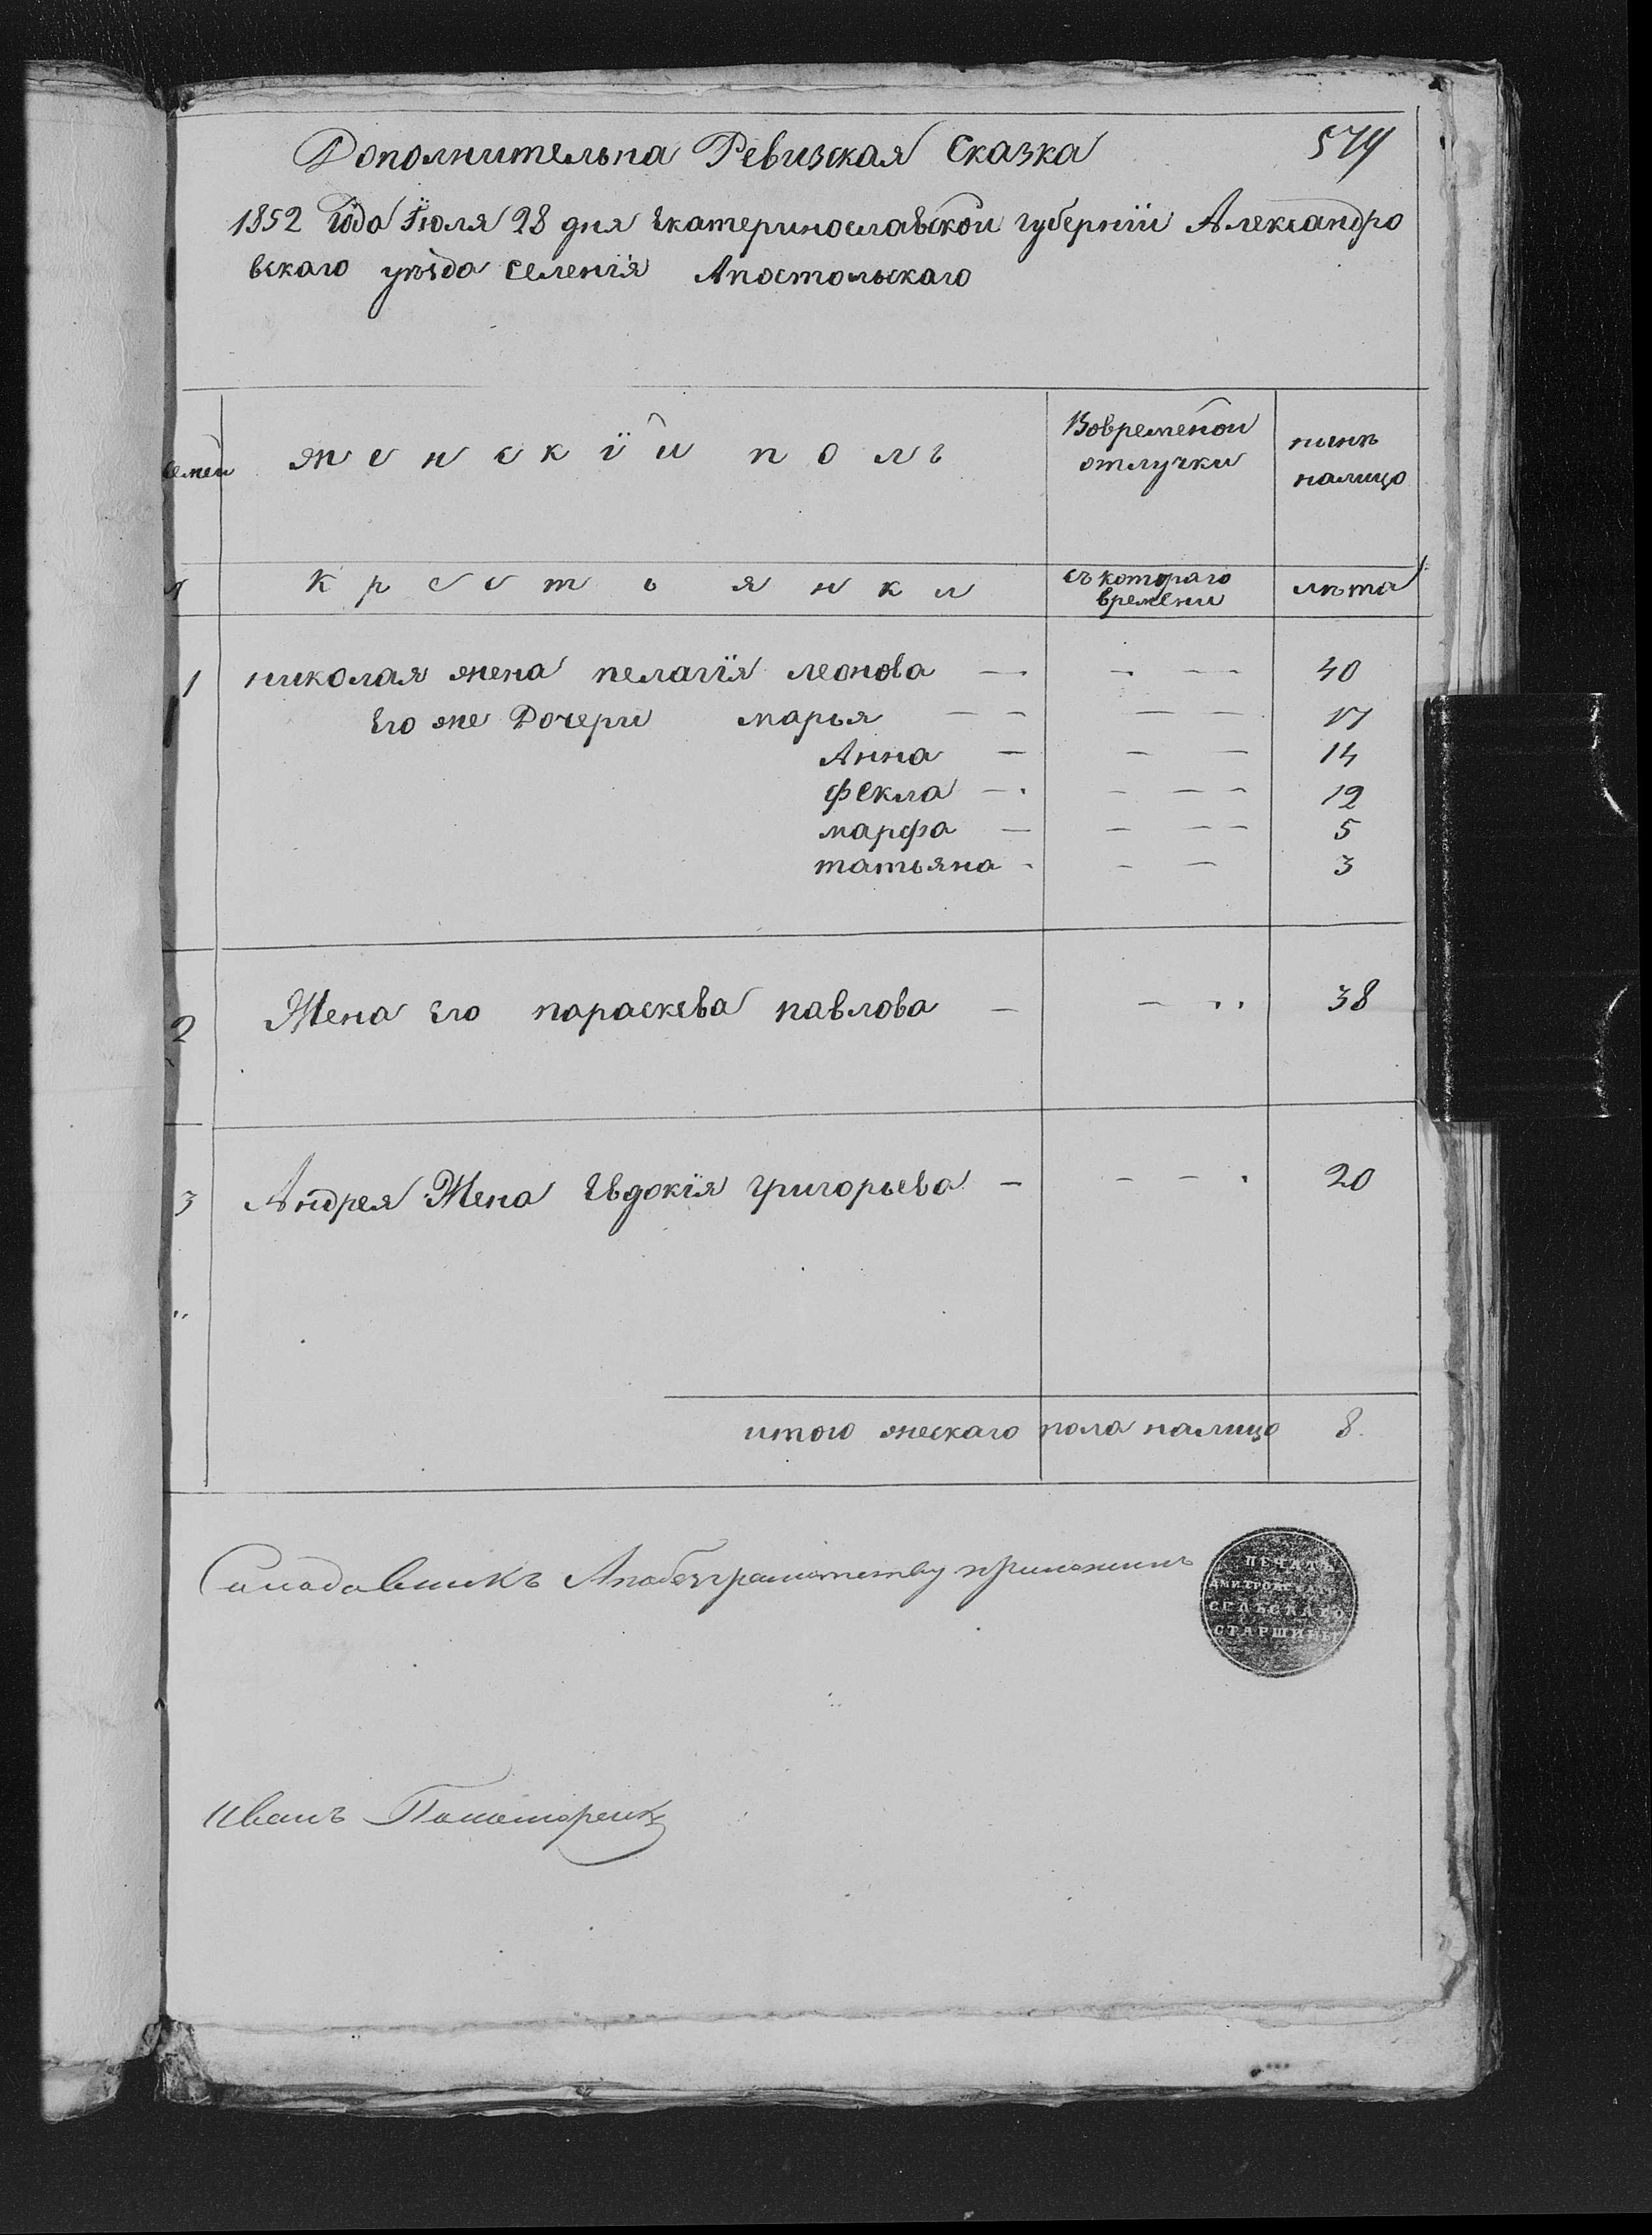 Дополнительна Ревизская Сказка
574
1852 года Іюля 28 дня Екатеринославской губерніи Александро
вскаго уѣзда селенія Апостольскаго
семей
женскій полъ
Вовременой
отлучки
нынѣ
налицо
Крестьянки
съ котораго
времени
лѣта
1 николая жена пелагія леонова — — — 40
Его же Дочери марья — — — — 17
Анна — — — 14
фекла — — — — 12
марфа — — — — 5
татьяна - — — 3
2 Жена Его параскева павлова — — 38
3 Андрея Жена Евдокія григорьева — — — 20
итого жескаго пола налицо 8.
приложилъ
ПЕЧАТЬ
ДМИТРОВСКАГО
СЕЛЬСКАГО
СТАРШИНЫ
Иванъ